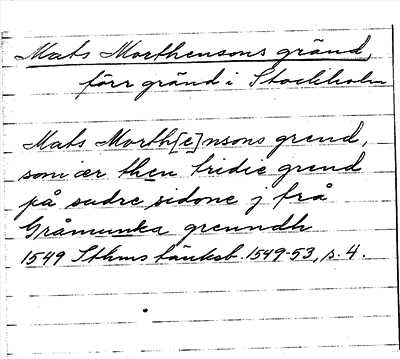 Mats Morthensons gränd,
förr gränd i Stockholm
Mats Morth[e]nsons grend,
som ær then tridie grend
på sudre sidone j frå
Gråmunka grenndh
1549 Sthms tänkeb. 1549-53, s. 4.